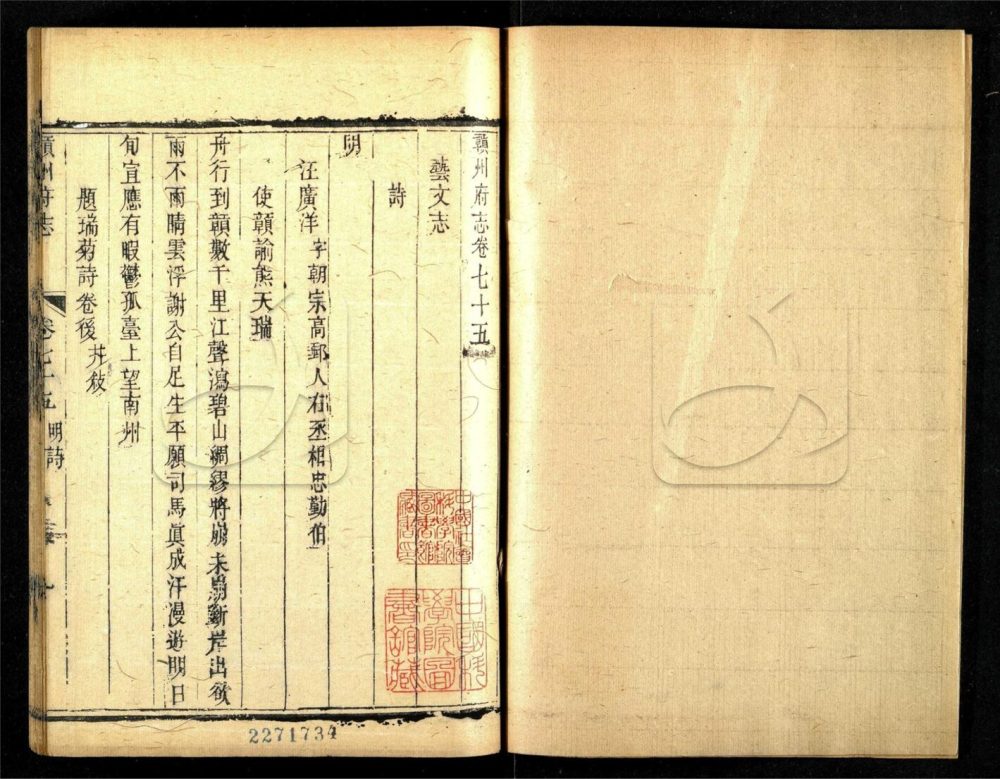 贛州府志卷七十五
藝文志
詩
明
汪廣洋 字朝宗高郵人右丞相忠勤伯
使贛諭熊天瑞
舟行到贛數千里江聲瀉碧山綢繆將崩未崩斷岸出欲
雨不雨晴雲浮謝公自足生平願司馬眞成汗漫遊明日
旬宜應有暇鬱孤臺上望南州
題瑞菊詩卷後 并敍
贛州府志 卷七十五 明詩
中國科學院圖書館藏
2271734